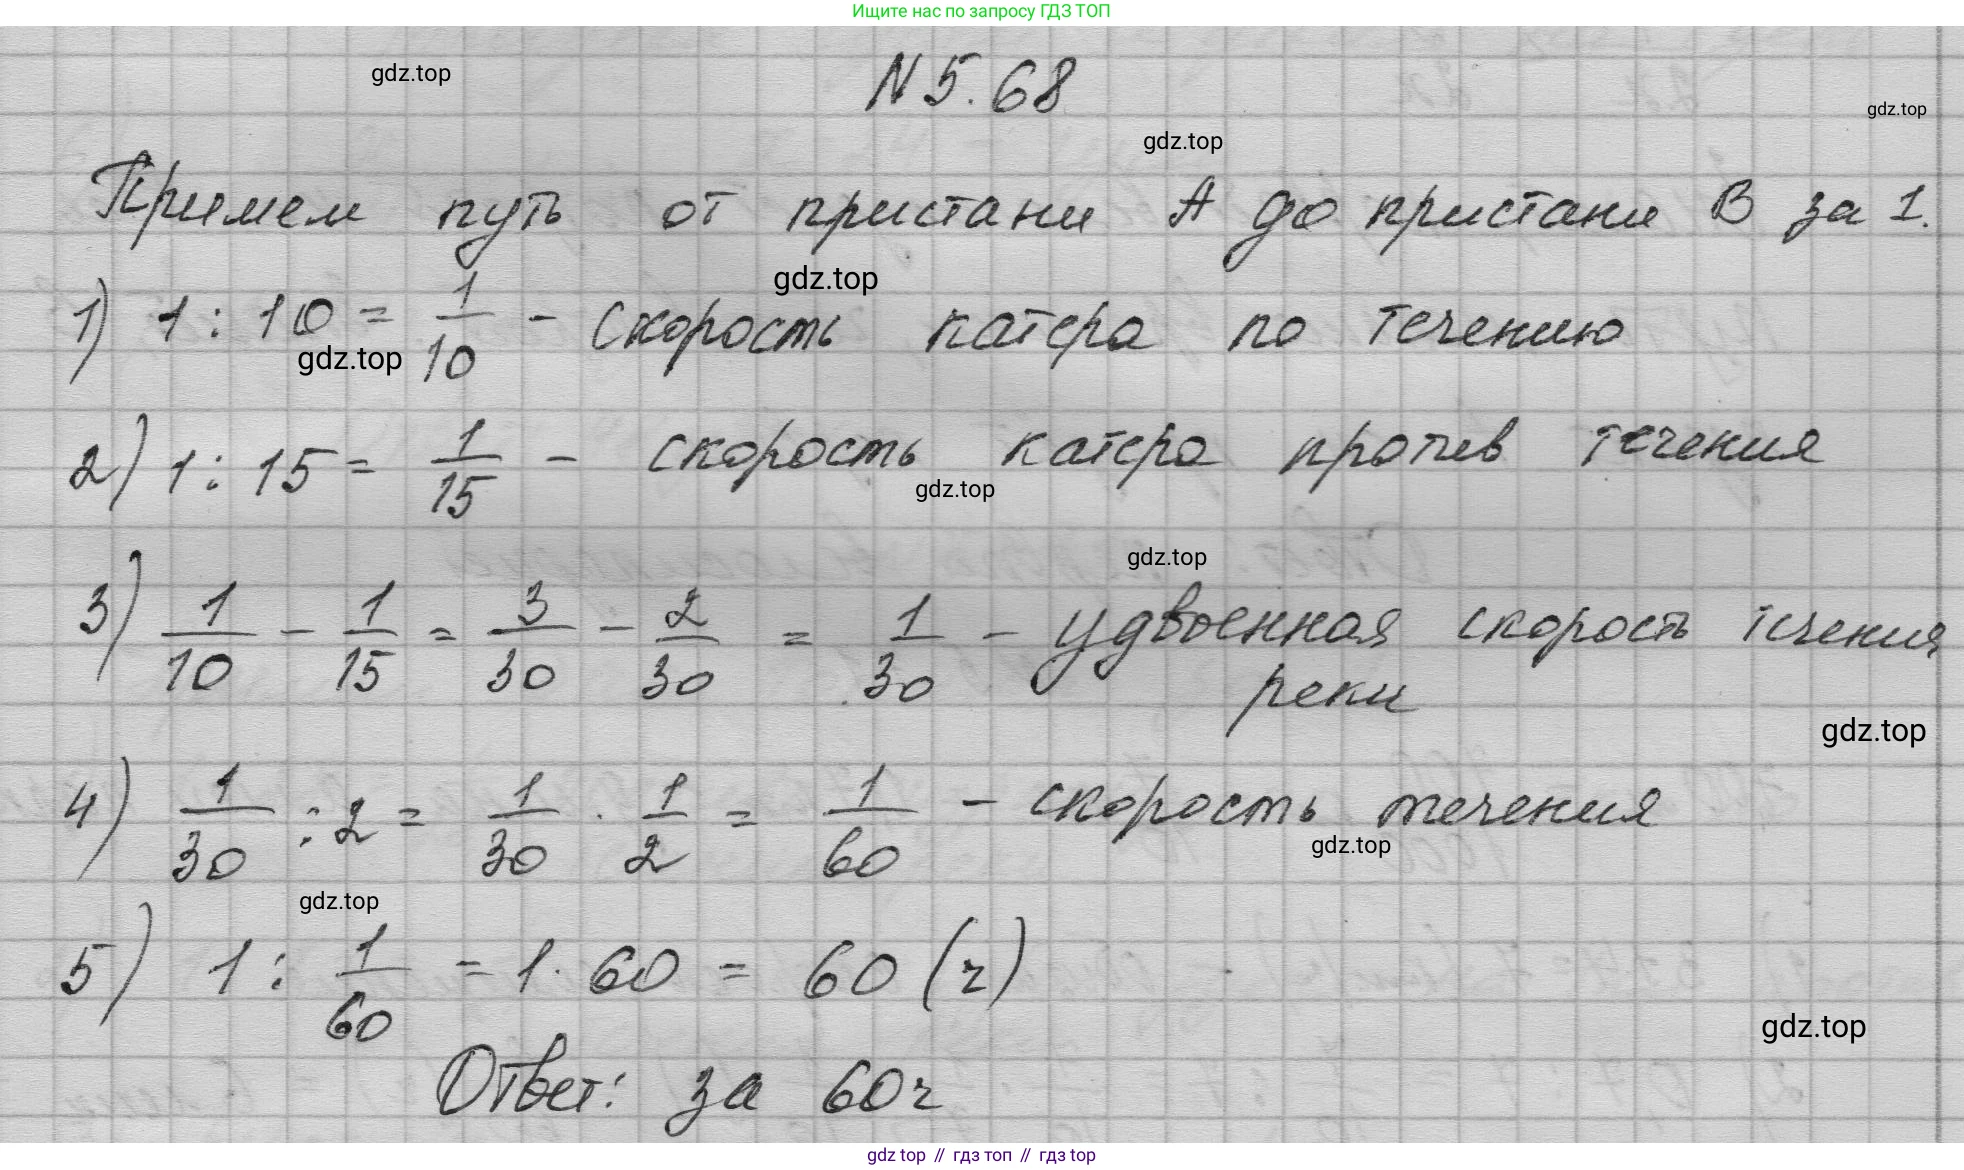 Ищите нас по запросу ГДЗ ТОП
N 5.68
gdz.top
gdz.top
gdz.top
Примем путь от пристани А до пристани В за 1.
gdz.top
1) 1 : 10 = 1/10 - скорость катера по течению
gdz.top
2) 1 : 15 = 1/15 - скорость катера против течения
gdz.top
gdz.top
3) 1/10 - 1/15 = 3/30 - 2/30 = 1/30 - удвоенная скорость течения
реки
gdz.top
4) 1/30 : 2 = 1/30 · 1/2 = 1/60 - скорость течения
gdz.top
gdz.top
5) 1 : 1/60 = 1 · 60 = 60 (ч)
gdz.top
Ответ: за 60ч
gdz top // гдз топ // гдз top